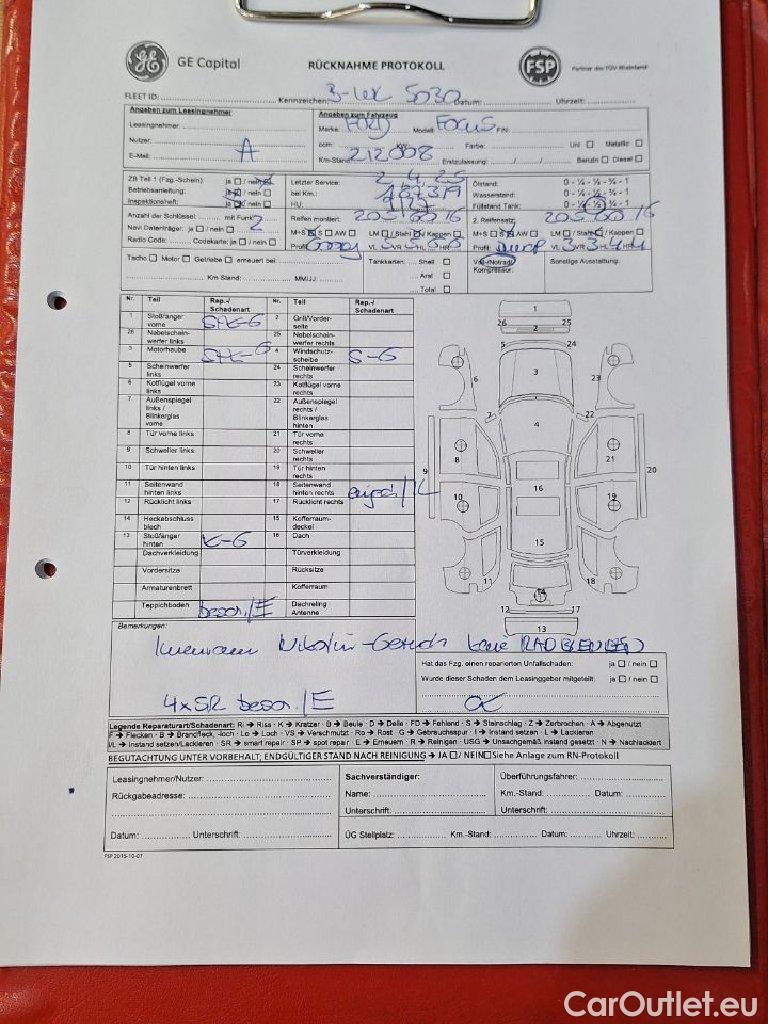 GE Capital RÜCKNAHME PROTOKOLL FSP Partner des TÜV Rheinland
FLEET ID: Kennzeichen: Datum: Uhrzeit:
Angaben zum Leasingnehmer Angaben zum Fahrzeug
Leasingnehmer: Marke FORD Modell: FOCUS FIN:
Nutzer: ccm: KW: Farbe: Uni Metallic
E-Mail: A Km-Stand: 212008 Erstzulassung: / / Benzin Diesel
ZB Teil 1 (Fzg.-Schein): ja / nein Letzter Service: 2.4.25 Ölstand: 0 - ¼ - ½ - ¾ - 1
Betriebsanleitung: ja / nein bei Km.: Wasserstand: 0 - ¼ - ½ - ¾ - 1
Inspektionsheft: ja / nein HU: Füllstand Tank: 0 - ¼ - ½ - ¾ - 1
Anzahl der Schlüssel: mit Funk: 2 Reifen montiert: 2. Reifensatz:
Navi Datenträger: ja / nein M+S S AW LM / Stahl / Kappen M+S S AW LM / Stahl / Kappen
Radio Code: Codekarte: ja / nein Profil VL VR HL HR Profil VL VR HL HR
Tacho Motor Getriebe erneuert bei: Tankkarten: Shell Voll-/Notrad/ Sonstige Ausstattung:
Aral Kompressor:
Km Stand: MM/JJ: Total
Nr. Teil Rep.-/ Schadenart Nr. Teil Rep.-/ Schadenart
1 Stoßfänger vorne 2 Grill/Vorderseite
26 Nebelscheinwerfer links 25 Nebelscheinwerfer rechts
3 Motorhaube 4 Windschutzscheibe S-G
5 Scheinwerfer links 24 Scheinwerfer rechts
6 Kotflügel vorne links 23 Kotflügel vorne rechts
7 Außenspiegel links / Blinkerglas vorne 22 Außenspiegel rechts / Blinkerglas hinten
8 Tür vorne links 21 Tür vorne rechts
9 Schweller links 20 Schweller rechts
10 Tür hinten links 19 Tür hinten rechts
11 Seitenwand hinten links 18 Seitenwand hinten rechts
12 Rücklicht links 17 Rücklicht rechts
14 Heckabschluss blech 15 Kofferraumdeckel
13 Stoßfänger hinten K-G 16 Dach
Dachverkleidung Türverkleidung
Vordersitze Rücksitze
Armaturenbrett Kofferraum
Teppichboden besch./E Dachreling Antenne
1
26 25
2
5 24
3
6 23
7 22
4
8 21
9 20
10 16 19
15
11 18
14
12 17
13
Bemerkungen:
Innenraum Nikotin-Geruch
Hat das Fzg. einen reparierten Unfallschaden: ja / nein
Wurde dieser Schaden dem Leasinggeber mitgeteilt: ja / nein
4xSR besch./E
Legende Reparaturart/Schadenart: Ri → Riss · K → Kratzer · B → Beule · D → Delle · FD → Fehlend · S → Steinschlag · Z → Zerbrochen · A → Abgenutzt
F → Flecken · B → Brandfleck, -loch · Lo → Loch · VS → Verschmutzt · Ro → Rost · G → Gebrauchsspur · I → Instand setzen · L → Lackieren
I/L → Instand setzen/Lackieren · SR → smart repair · SP → spot repair · E → Erneuern · R → Reinigen · USG → Unsachgemäß instand gesetzt · N → Nachlackiert
BEGUTACHTUNG UNTER VORBEHALT; ENDGÜLTIGER STAND NACH REINIGUNG → JA / NEIN Siehe Anlage zum RN-Protokoll
Leasingnehmer/Nutzer: Sachverständiger: Überführungsfahrer:
Rückgabeadresse: Name: Km.-Stand: Datum:
Unterschrift: Unterschrift:
Datum: Unterschrift: ÜG Stellplatz: Km.-Stand: Datum: Uhrzeit:
FSP 2015-10-07
CarOutlet.eu